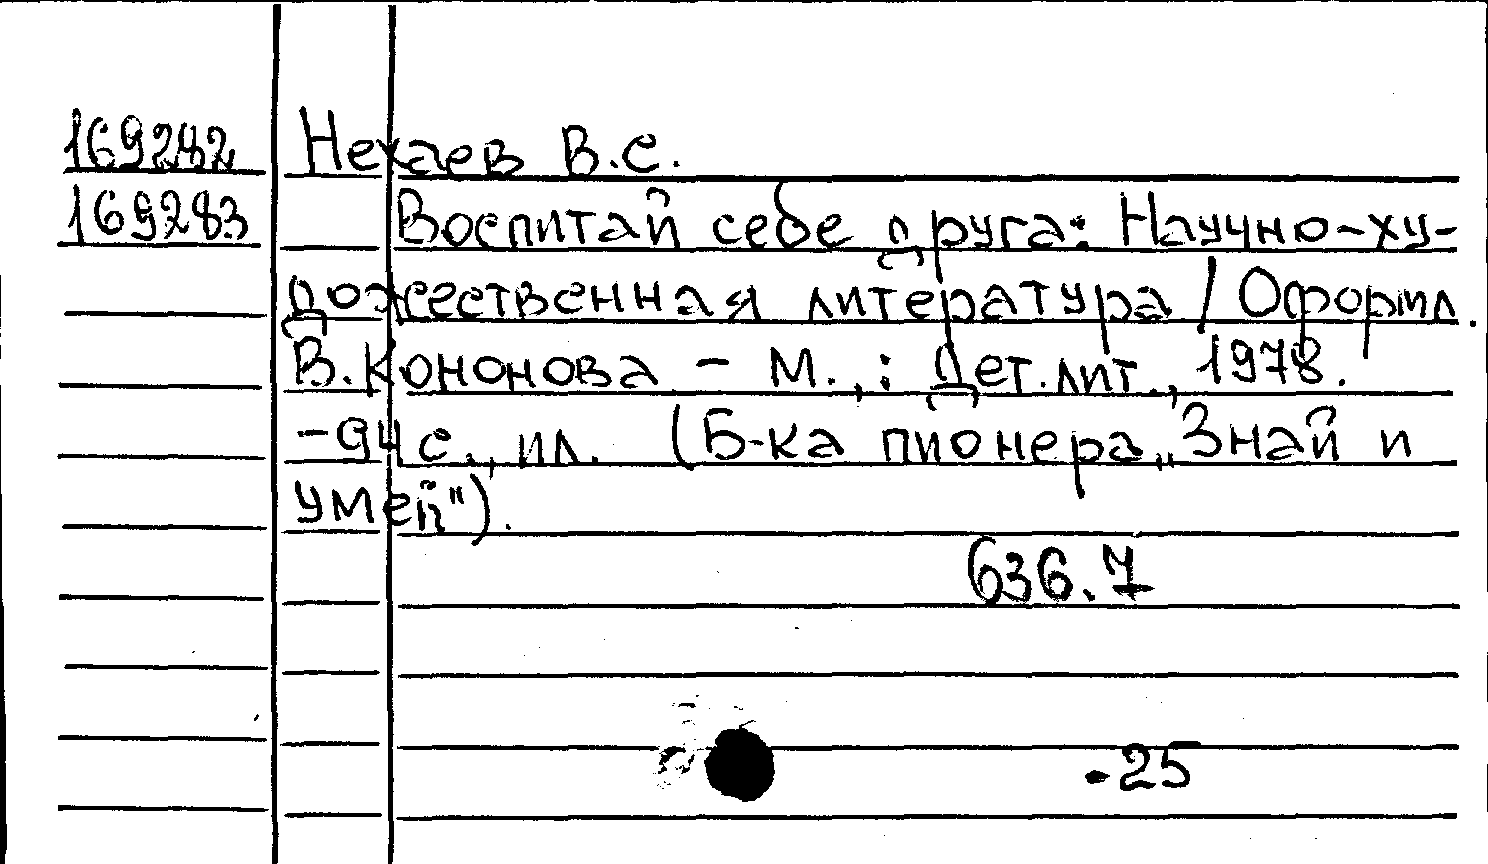 169282 Нехаев В.С.
169283 Воспитай себе друга: Научно-ху-
дожественная литература / Оформл.
В. Кононова - М.,: Дет.лит., 1978.
-94 с., ил. (Б-ка пионера „Знай и
умей").
636.7
-25